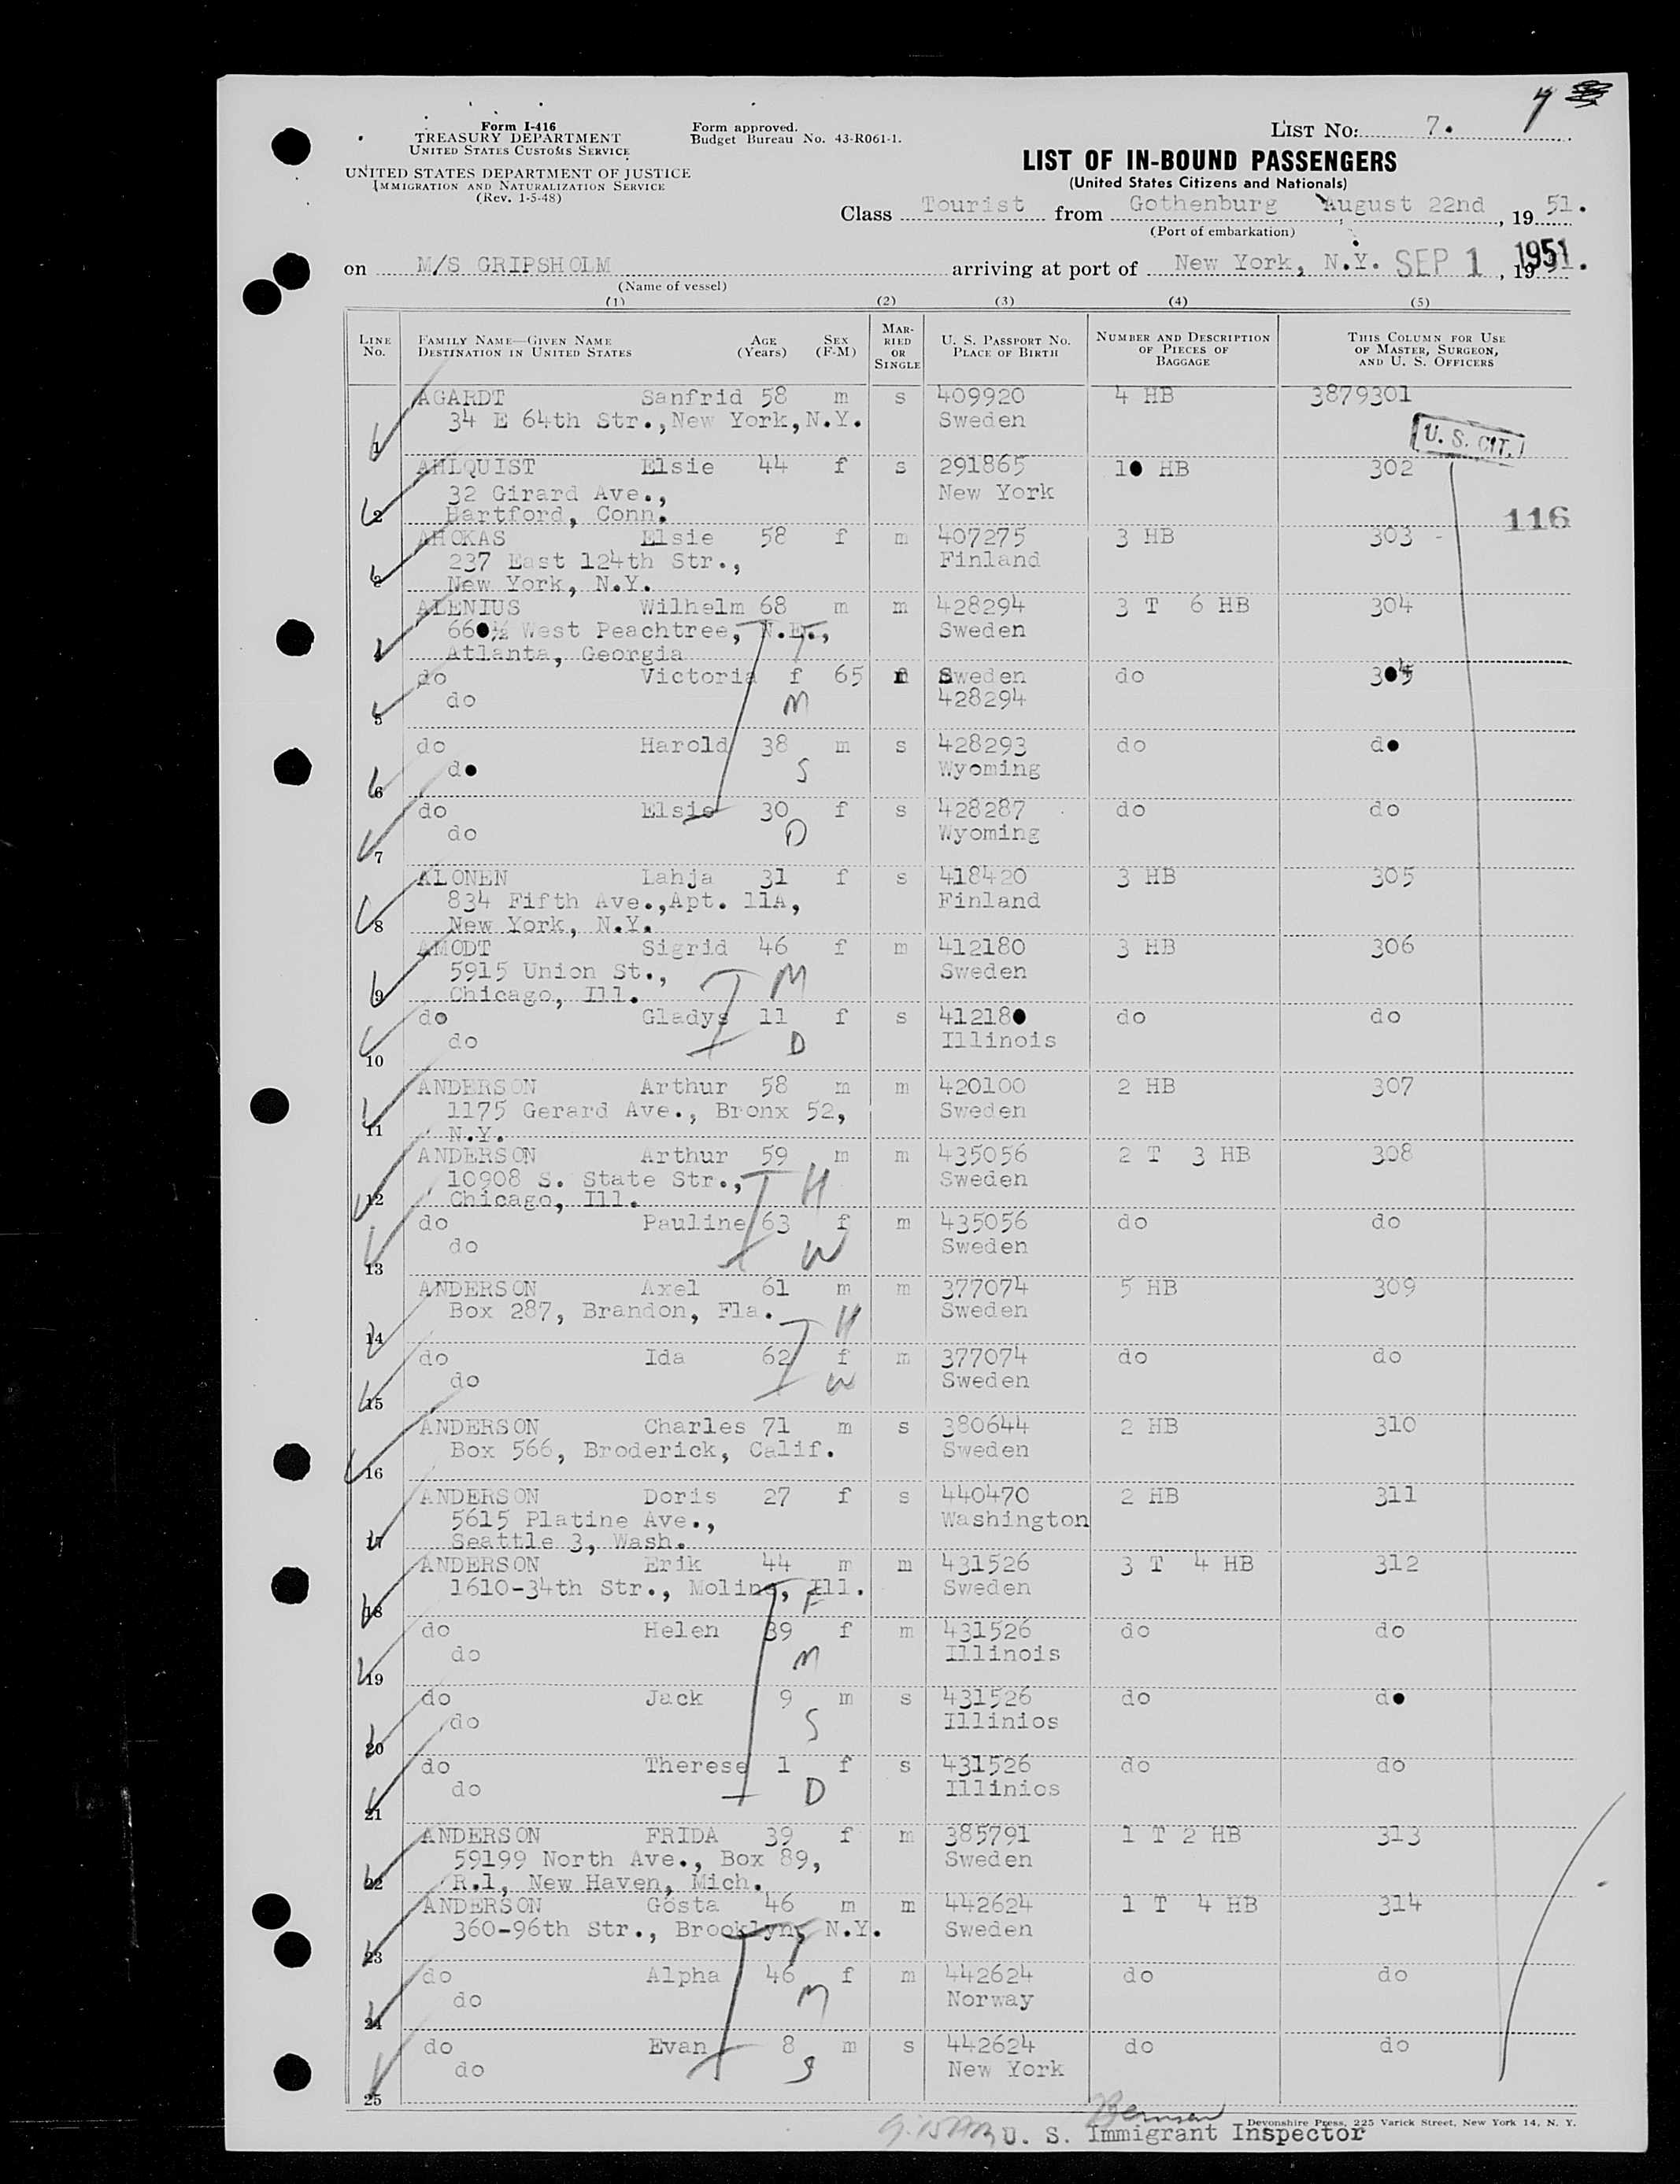 7
Form I-416
TREASURY DEPARTMENT
UNITED STATES CUSTOMS SERVICE
UNITED STATES DEPARTMENT OF JUSTICE
IMMIGRATION AND NATURALIZATION SERVICE
(Rev. 1-5-48)
Form approved.
Budget Bureau No. 43-R061-1.
LIST NO: 7.
LIST OF IN-BOUND PASSENGERS
(United States Citizens and Nationals)
Class Tourist from Gothenburg, August 22nd, 19 51.
(Port of embarkation)
on M/S GRIPSHOLM arriving at port of New York, N.Y. SEP 1 1951, 1951.
(Name of vessel)
(1) (2) (3) (4) (5)
LINE NO. FAMILY NAME—GIVEN NAME DESTINATION IN UNITED STATES AGE (Years) SEX (F-M) MARRIED OR SINGLE U. S. PASSPORT NO. PLACE OF BIRTH NUMBER AND DESCRIPTION OF PIECES OF BAGGAGE THIS COLUMN FOR USE OF MASTER, SURGEON, AND U. S. OFFICERS
AGARDT Sanfrid 58 m s 409920 4 HB 3879301
34 E 64th Str., New York, N.Y. Sweden
U. S. CIT.
1
AHLQUIST Elsie 44 f s 291865 10 HB 302
32 Girard Ave., New York
2 Hartford, Conn. 116
AHOKAS Elsie 58 f m 407275 3 HB 303 -
237 East 124th Str., Finland
3 New York, N.Y.
ALENIUS Wilhelm 68 m m 428294 3 T 6 HB 304
660½ West Peachtree, N.E., Sweden
4 Atlanta, Georgia
do Victoria f 65 m Sweden do 304
do M 428294
5
do Harold 38 m s 428293 do do
do S Wyoming
6
do Elsie 30 f s 428287 do do
do D Wyoming
7
ALONEN Lahja 31 f s 418420 3 HB 305
834 Fifth Ave., Apt. 11A, Finland
8 New York, N.Y.
AMODT Sigrid 46 f m 412180 3 HB 306
5915 Union St., M Sweden
9 Chicago, Ill.
do Gladys 11 f s 412180 do do
do D Illinois
10
ANDERSON Arthur 58 m m 420100 2 HB 307
1175 Gerard Ave., Bronx 52, Sweden
11 N.Y.
ANDERSON Arthur 59 m m 435056 2 T 3 HB 308
10908 S. State Str., H Sweden
12 Chicago, Ill.
do Pauline 63 f m 435056 do do
do W Sweden
13
ANDERSON Axel 61 m m 377074 5 HB 309
Box 287, Brandon, Fla. H Sweden
14
do Ida 62 f m 377074 do do
do W Sweden
15
ANDERSON Charles 71 m s 380644 2 HB 310
Box 566, Broderick, Calif. Sweden
16
ANDERSON Doris 27 f s 440470 2 HB 311
5615 Platine Ave., Washington
17 Seattle 3, Wash.
ANDERSON Erik 44 m m 431526 3 T 4 HB 312
1610-34th Str., Moline, Ill. F Sweden
18
do Helen 39 f m 431526 do do
do M Illinois
19
do Jack 9 m s 431526 do do
do S Illinios
20
do Therese 1 f s 431526 do do
do D Illinios
21
ANDERSON FRIDA 39 f m 385791 1 T 2 HB 313
59199 North Ave., Box 89, Sweden
22 R.1, New Haven, Mich.
ANDERSON Gösta 46 m m 442624 1 T 4 HB 314
360-96th Str., Brooklyn, N.Y. F Sweden
23
do Alpha 46 f m 442624 do do
do M Norway
24
do Evan 8 m s 442624 do do
do S New York
25
Devonshire Press, 225 Varick Street, New York 14, N. Y.
U. S. Immigrant Inspector